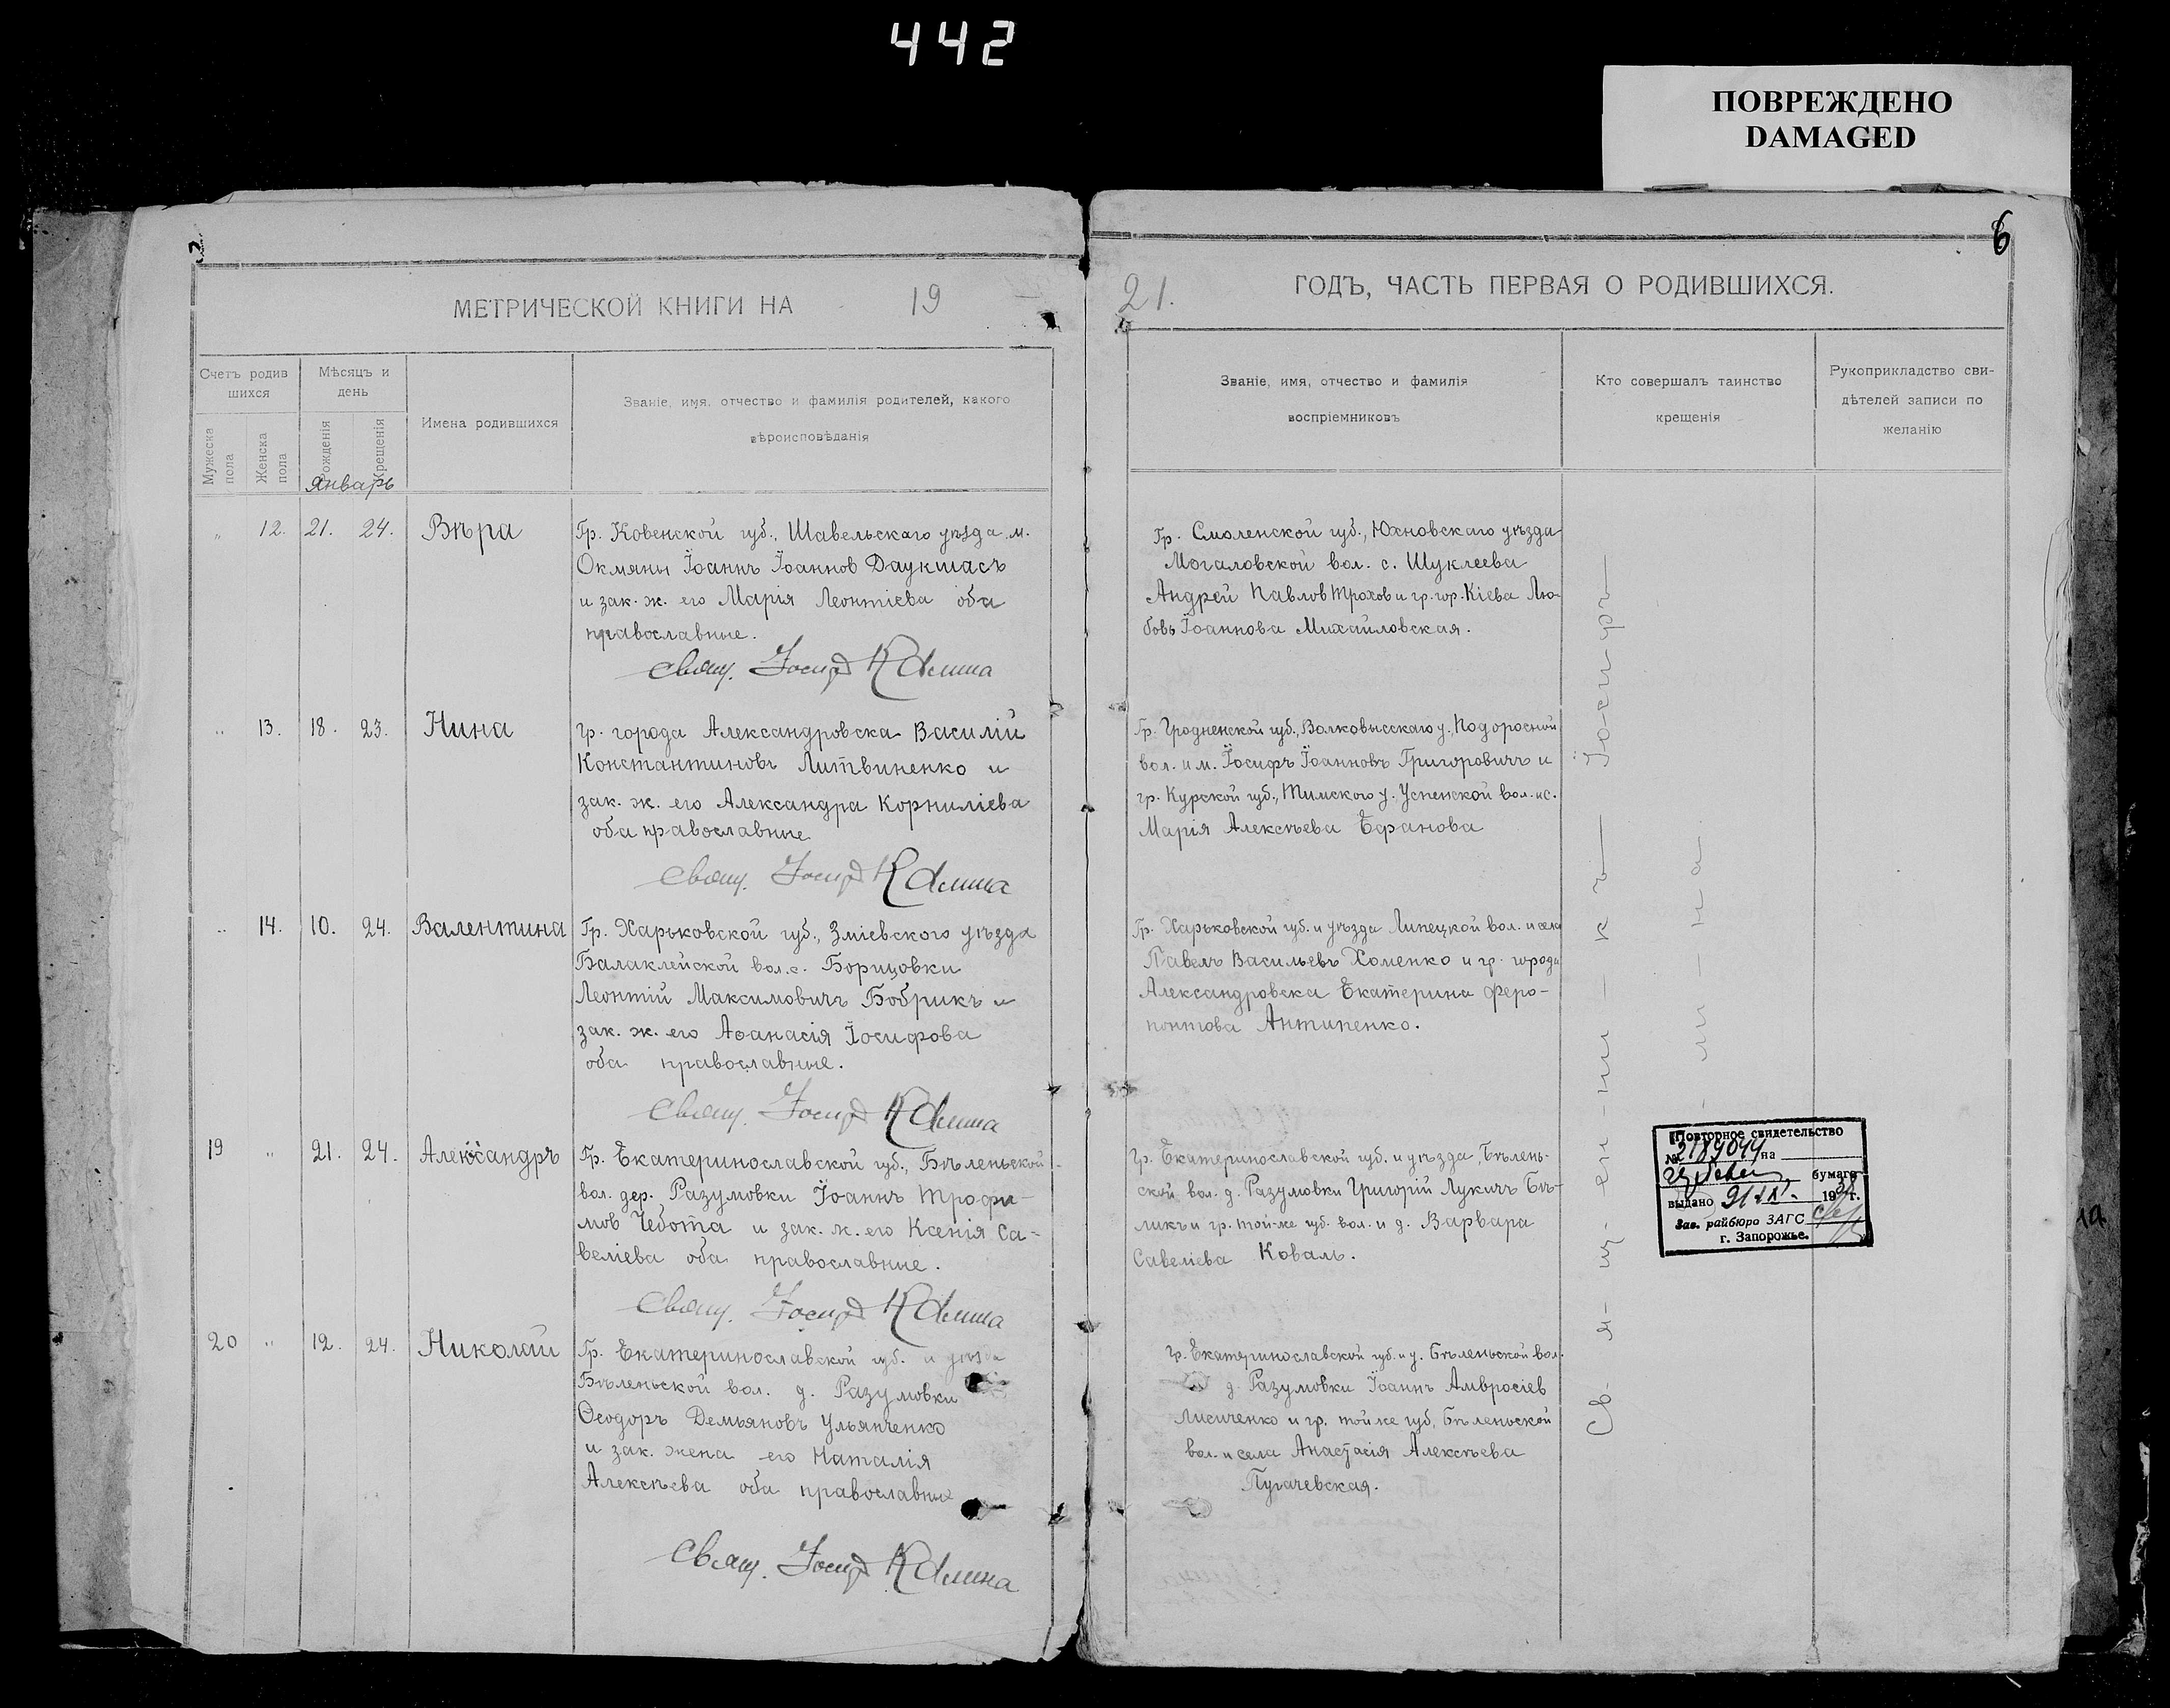 442
ПОВРЕЖДЕНО
DAMAGED
6
МЕТРИЧЕСКОЙ КНИГИ НА 19
21. ГОДЪ, ЧАСТЬ ПЕРВАЯ О РОДИВШИХСЯ.
Счетъ родив
шихся
Мужеска
пола
Женска
пола
Мѣсяцъ и
день
Рожденія
Крещенія
Январь
Имена родившихся
Званіе, имя, отчество и фамилія родителей, какого
вѣроисповѣданія
Званіе, имя, отчество и фамилія
воспріемниковъ
Кто совершалъ таинство
крещенія
Рукоприкладство сви-
дѣтелей записи по
желанію
„ 12. 21. 24. Вѣра
Гр. Ковенской губ., Шавельскаго уѣзда м.
Окмяны Іоаннъ Іоаннов Даукшасъ
и зак. ж. его Марія Леонтіева оба
православные.
Свящ. Іосиф Калина
Гр. Смоленской губ., Юхновскаго уѣзда
Могаловской вол. с. Шуклеева
Андрей Павлов Трохов и гр. гор. Кіева Лю-
бовь Іоаннова Михайловская.
„ 13. 18. 23. Нина
гр. города Александровска Василій
Константиновъ Литвиненко и
зак. ж. его Александра Корниліева
оба православные
Свящ. Іосиф Калина
Гр. Гродненской губ., Волковысскаго у., Подоросной
вол. и м. Іосифъ Іоанновъ Григоровичъ и
гр. Курской губ., Тимского у. Успенской вол. и с.
Марія Алексѣева Ефанова
„ 14. 10. 24. Валентина
Гр. Харьковской губ., Зміевского уѣзда
Балаклейской вол. с. Борщовки
Леонтій Максимовичъ Бобрикъ и
зак. ж. его Аѳанасія Іосифова
оба православные.
Свящ. Іосиф Калина
Гр. Харьковской губ. и уѣзда Липецкой вол. и села
Павелъ Васильевъ Хоменко и гр. города
Александровска Екатерина Феро-
понтова Антипенко.
19 „ 21. 24. Александръ
Гр. Екатеринославской губ., Бѣленьской
вол. дер. Разумовки Іоаннъ Трофи-
мов Чебота и зак. ж. его Ксенія Са-
веліева оба православные.
Свящ. Іосиф Калина
Гр. Екатеринославской губ. и уѣзда, Бѣлень-
ской вол. д. Разумовки Григорій Лукичъ Бѣ-
ликъ и гр. той-же губ. вол. и д. Варвара
Савеліева Коваль.
20 „ 12. 24. Николай
Гр. Екатеринославской губ. и уѣзда
Бѣленьской вол. д. Разумовки
Ѳеодоръ Демьяновъ Ульянченко
и зак. жена его Наталія
Алексѣева оба православные
Свящ. Іосиф Калина
гр. Екатеринославской губ. и у. Бѣленьской вол.
д. Разумовки Іоаннъ Амвросіев
Лисиченко и гр. той же губ., Бѣленьской
вол. и села Анастасія Алексѣева
Пугачевская.
Св-я-щ-ен-ни-к ъ— Іо-си-фъ—
-ли-на.
Повторное свидетельство
№ 2189044 на
бумаге
выдано 21/XI 19 г.
Зав. райбюро ЗАГС
г. Запорожье.